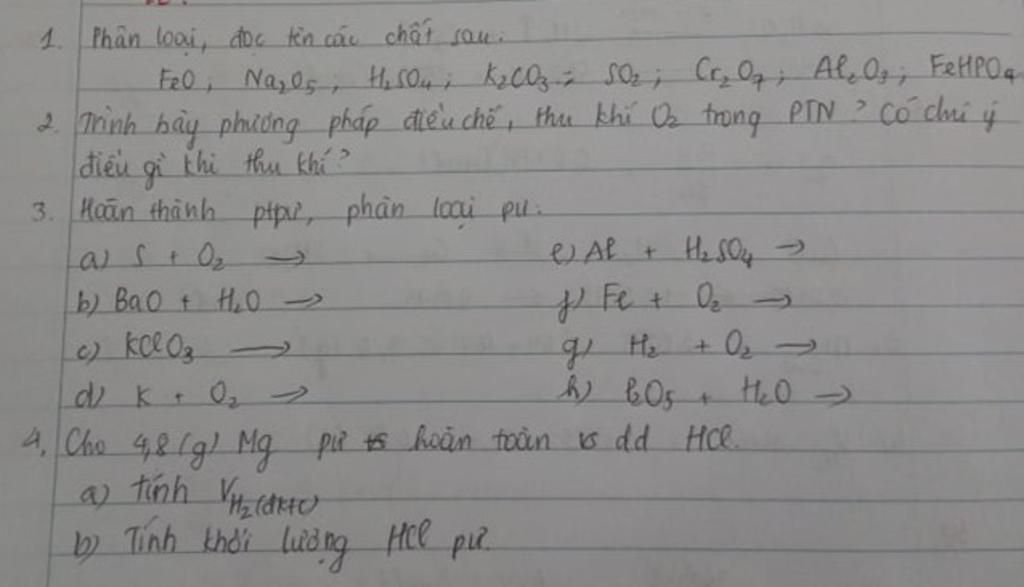 1. Phân loại, đọc tên các chất sau:
FeO, Na₂O₅, H₂SO₄; K₂CO₃; SO₂; Cr₂O₇; Al₂O₃; FeHPO₄
2. Trình bày phương pháp điều chế, thu khí O₂ trong PTN? Có chú ý
điều gì khi thu khí?
3. Hoàn thành ptpư, phân loại pư.
a) S + O₂ →
e) Al + H₂SO₄ →
b) BaO + H₂O →
f) Fe + O₂ →
c) KClO₃ →
g) H₂ + O₂ →
d) K + O₂ →
h) P₂O₅ + H₂O →
4. Cho 4,8 (g) Mg pư hoàn toàn vs dd HCl.
a) tính V H₂(đktc)
b) Tính khối lượng HCl pư.